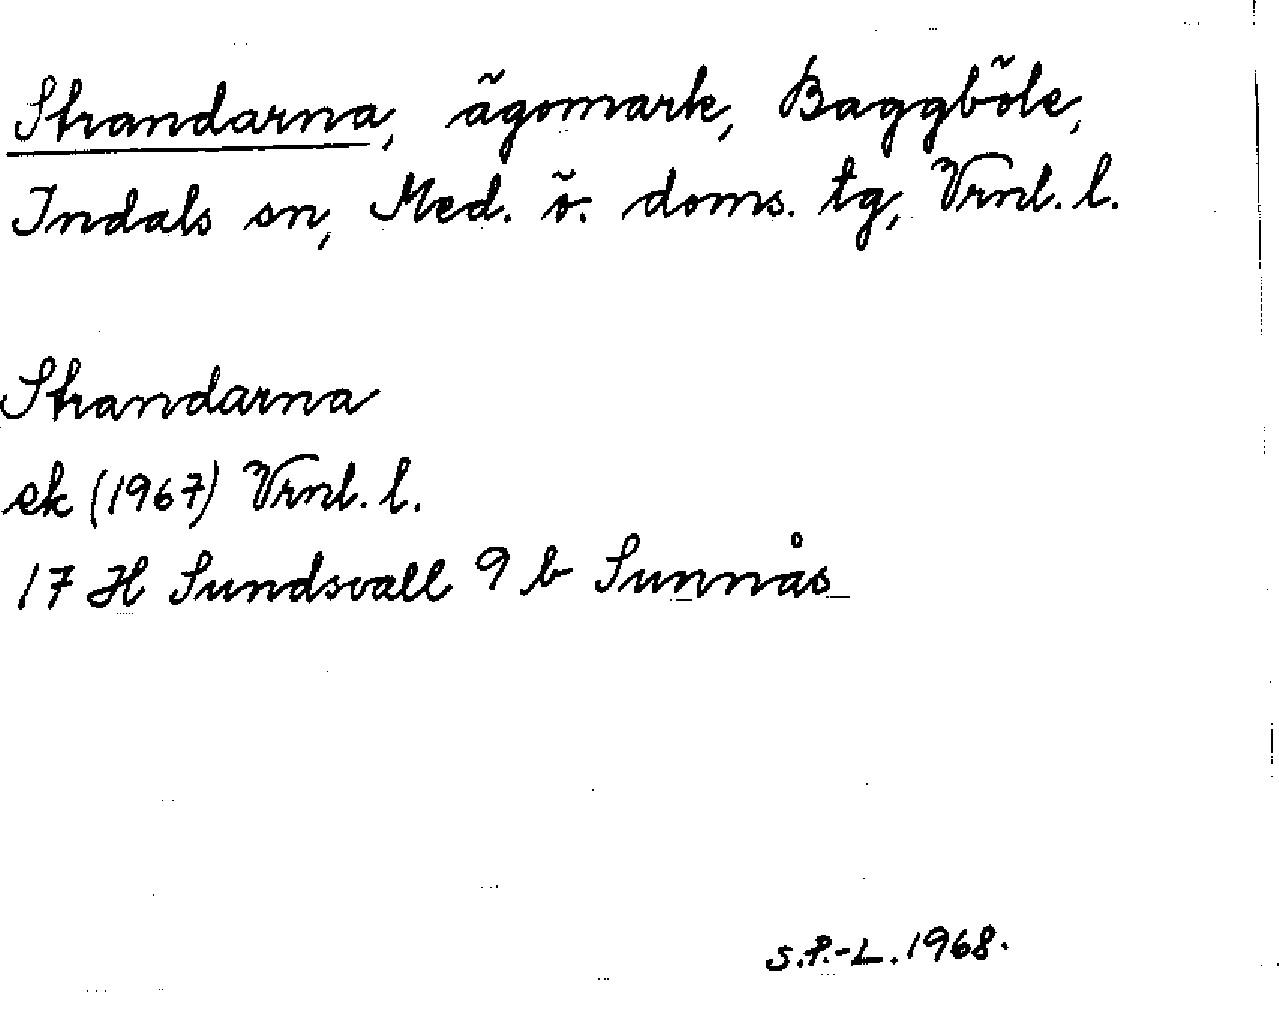 Strandarna, ägomark, Baggböle,
Indals sn, Med. ö. doms. tg, Vrnl. l.
Strandarna
ek (1967) Vrnl. l.
17 H Sundsvall 9 b Sunnås
S.P.-L. 1968.